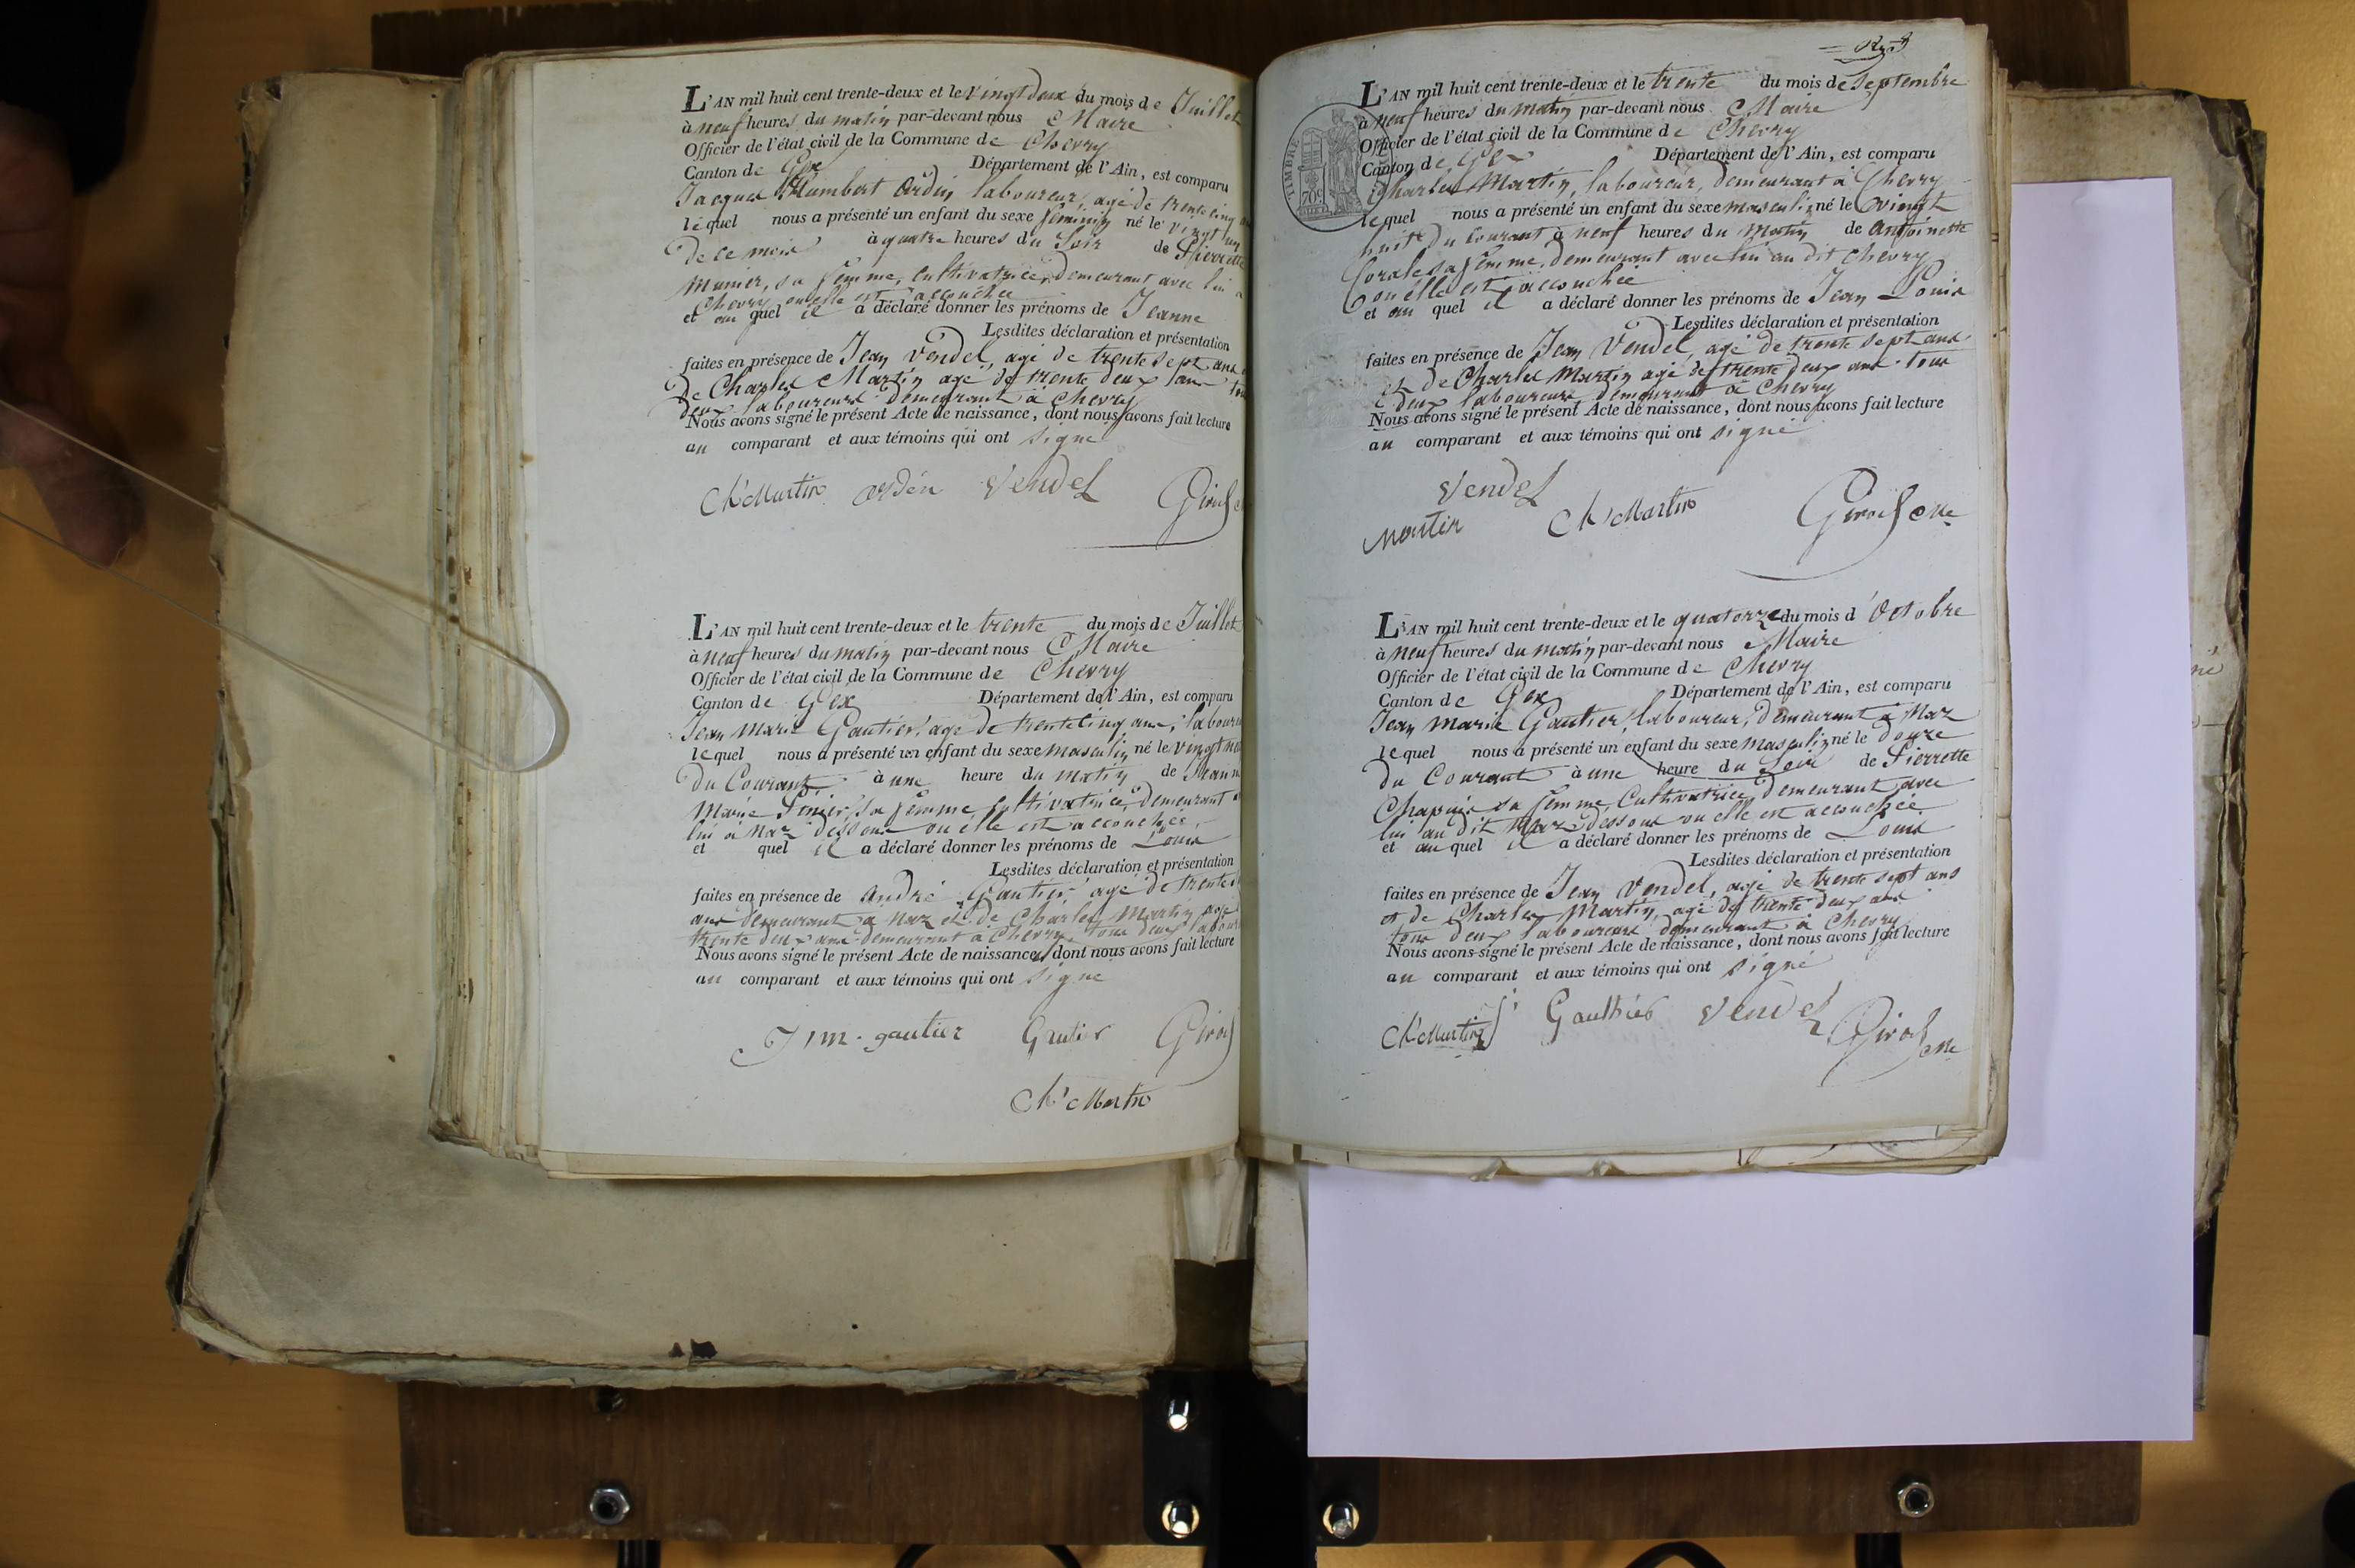 L'AN mil huit cent trente-deux et le vingt deux du mois de Juillet
à neuf heures du matin par-devant nous Maire
Officier de l'état civil de la Commune de Chevry
Canton de Gex Département de l'Ain, est comparu
Jacques Humbert Ordin laboureur, agé de trente cinq
lequel nous a présenté un enfant du sexe féminin né le vingt un
de ce mois à quatre heures du Soir de Pierrette
Munier, sa femme, cultivatrice, demeurant avec lui a
Chevry ou elle est accouchée
et au quel il a déclaré donner les prénoms de Jeanne
Lesdites déclaration et présentation
faites en présence de Jean Vendel, agé de trente sept ans
de Charles Martin agé de trente deux ans
deux laboureurs demeurant à Chevry
Nous avons signé le présent Acte de naissance, dont nous avons fait lecture
au comparant et aux témoins qui ont signé
Ch Martin Ordin Vendel
L'AN mil huit cent trente-deux et le trente du mois de Juillet
à neuf heures du matin par-devant nous Maire
Officier de l'état civil de la Commune de Chevry
Canton de Gex Département de l'Ain, est comparu
Jean Marie Gautier, agé de trente cinq ans,
lequel nous a présenté un enfant du sexe masculin né le
du Courant à une heure du matin de
Marie sa femme, cultivatrice, demeurant
lui à Naz dessous ou elle est accouchée,
et quel il a déclaré donner les prénoms de Louis
Lesdites déclaration et présentation
faites en présence de André Gautier agé de trente
ans demeurant a Naz et de Charles Martin agé
trente deux ans demeurant à Chevry, tous deux
Nous avons signé le présent Acte de naissance, dont nous avons fait lecture
au comparant et aux témoins qui ont signé
J m. gautier Gautier
Ch Martin
L'AN mil huit cent trente-deux et le trente du mois de Septembre
à neuf heures du matin par-devant nous Maire
Officier de l'état civil de la Commune de Chevry
TIMBRE
70c
Canton de Gex Département de l'Ain, est comparu
Charles Martin, laboureur, demeurant à Chevry
lequel nous a présenté un enfant du sexe masculin né le vingt
huit du courant à neuf heures du matin de Antoinette
sa femme, demeurant avec lui au dit Chevry
ou elle est accouchée
et au quel il a déclaré donner les prénoms de Jean Louis
Lesdites déclaration et présentation
faites en présence de Jean Vendel, agé de trente sept ans
et de Charles Martin agé de trente deux ans tous
deux laboureurs demeurant à Chevry
Nous avons signé le présent Acte de naissance, dont nous avons fait lecture
au comparant et aux témoins qui ont signé
Vendel
Martin Ch Martin
L'AN mil huit cent trente-deux et le quatorze du mois d'Octobre
à neuf heures du matin par-devant nous Maire
Officier de l'état civil de la Commune de Chevry
Canton de Gex Département de l'Ain, est comparu
Jean Marie Gautier, laboureur, demeurant à Naz
lequel nous a présenté un enfant du sexe masculin né le douze
du Courant à une heure du Soir de Pierrette
Chapuis sa femme, Cultivatrice, demeurant avec
lui au dit Naz dessous ou elle est accouchée
et au quel il a déclaré donner les prénoms de Louis
Lesdites déclaration et présentation
faites en présence de Jean Vendel, agé de trente sept ans
et de Charles Martin, agé de trente deux ans
tous deux laboureurs demeurant à Chevry
Nous avons signé le présent Acte de naissance, dont nous avons fait lecture
au comparant et aux témoins qui ont signé
Ch Martin Gauthier Vendel